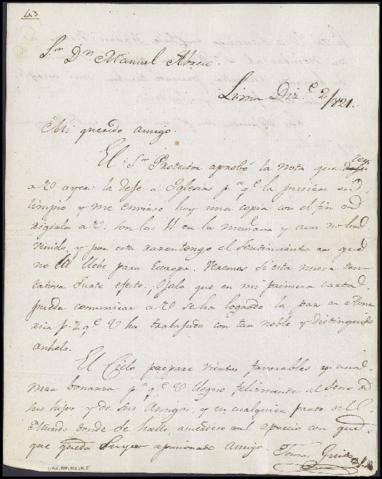 Sr. Dn. Manuel Abreu
Lima Dize. 2/1821.
Mi querido amigo.
El Sr. Protector aprobó la nota que
a V. ayer: la dejo a Iglesias pa. qe. la pusiese en
limpio y me enviase hoy una copia con el fin de
dirigirla a V. Son las 11 en la mañana y aun no ha
venido, y por esta razon tengo el sentimiento de que
no la lleve para Europa. Veremos si esta nueva ten-
tativa surte efecto; Ojala que en mi primera carta
pueda comunicar a V. se ha logrado la paz en Ame-
rica p. qe. V. ha trabajado con tan noble y distinguido
anhelo.
El Cielo prepare vientos favorables y
mar bonanza pa. qe. V. llegue felizmente al seno de
sus hijos y de sus Amigos, y en cualquier punto del
Mundo donde se halle acuerdese del aprecio con que
que queda Suyo apasionado Amigo. Tomas Guido